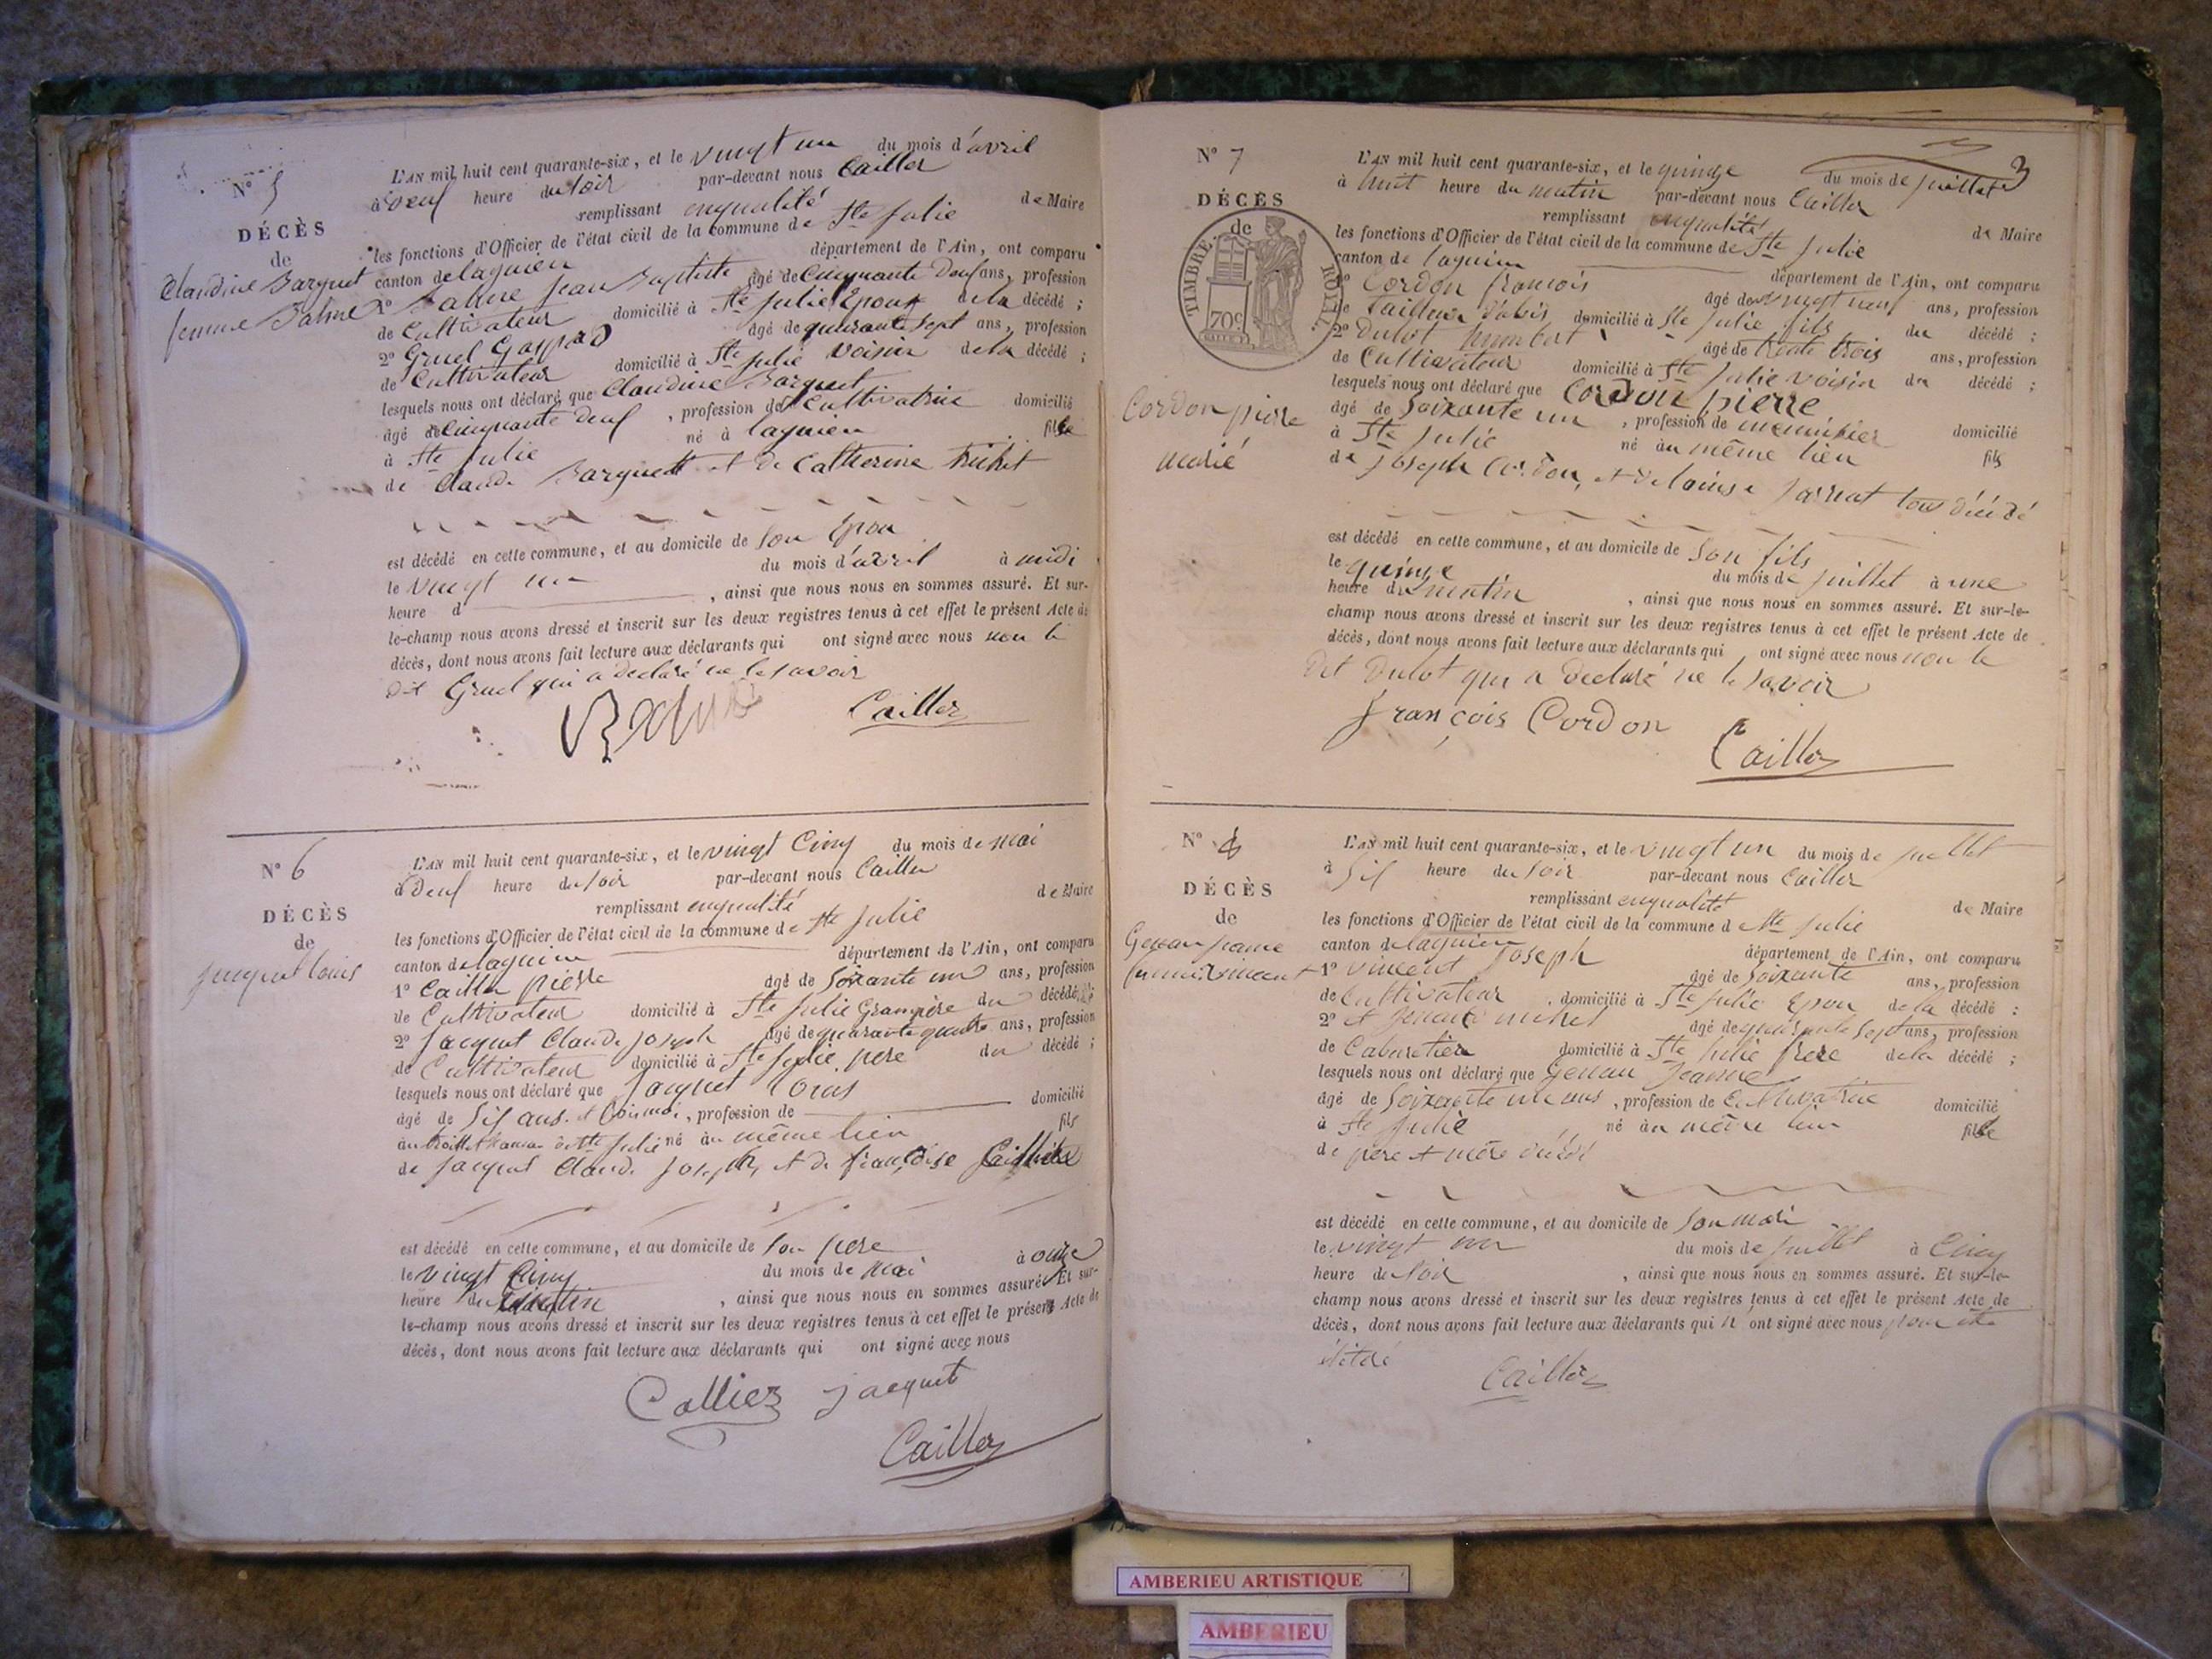 N° 5
DÉCÈS
de
Claudine Barquet
femme Balme
L'AN mil huit cent quarante-six, et le vingt un du mois d'avril
à neuf heure du soir par-devant nous Caillez
remplissant enqualité de Maire
les fonctions d'Officier de l'état civil de la commune de Ste Julie
canton de lagnieu département de l'Ain, ont comparu
1° Balme jean Baptiste âgé de Cinquante Deux ans, profession
de Cultivateur domicilié à Ste julie Epoux de la décédé ;
2° Gruel Gaspard âgé de quarante sept ans, profession
de Cultivateur domicilié à Ste julie voisin de la décédé ;
lesquels nous ont déclaré que Claudine Barquet
âgé de Cinquante deux , profession de Cultivatrice domicilié
à Ste julie né à lagnieu fille
de Claude Barquet et de Catherine
est décédé en cette commune, et au domicile de Son Epou
le vingt un du mois d'avril à midi
heure d , ainsi que nous nous en sommes assuré. Et sur-
le-champ nous avons dressé et inscrit sur les deux registres tenus à cet effet le présent Acte de
décès, dont nous avons fait lecture aux déclarants qui ont signé avec nous non le
dit Gruel qui a declaré ne le savoir
Caillez
N° 6
DÉCÈS
de
jacquet louis
L'AN mil huit cent quarante-six, et le vingt Cinq du mois de mai
à Deux heure du soir par-devant nous Caillez
remplissant enqualité de Maire
les fonctions d'Officier de l'état civil de la commune de Ste julie
canton de lagnieu département de l'Ain, ont comparu
1° Caillez pierre âgé de Soixante un ans, profession
de Cultivateur domicilié à Ste julie Granpère du décédé ;
2° jacquet Claude joseph âgé de quarante quatre ans, profession
de Cultivateur domicilié à Ste julie pere du décédé ;
lesquels nous ont déclaré que jacquet louis
âgé de Six ans et , profession de domicilié
Ste julie né au même lieu fils
de jacquet Claude joseph, et de françoise
est décédé en cette commune, et au domicile de Son pere
le vingt Cinq du mois de mai à onze
heure du matin , ainsi que nous nous en sommes assuré. Et sur-
le-champ nous avons dressé et inscrit sur les deux registres tenus à cet effet le présent Acte de
décès, dont nous avons fait lecture aux déclarants qui ont signé avec nous
Calliez jacquet
Caillez
3
N° 7
DÉCÈS
de
TIMBRE ROYAL
70c
Cordon pierre
marié
L'AN mil huit cent quarante-six, et le quinze du mois de juillet
à huit heure du matin par-devant nous Caillez
remplissant enqualité de Maire
les fonctions d'Officier de l'état civil de la commune de Ste Julie
canton de lagnieu département de l'Ain, ont comparu
1° Cordon francois âgé de vingt neuf ans, profession
de Tailleur d'abis domicilié à Ste julie fils du décédé ;
2° Dulot humbert âgé de trente trois ans, profession
de Cultivateur domicilié à Ste julie voisin du décédé ;
lesquels nous ont déclaré que Cordon pierre
âgé de Soixante un , profession de menuisier domicilié
à Ste julie né au même lieu fils
de joseph Cordon, et de louise tous décédé
est décédé en cette commune, et au domicile de Son fils
le quinze du mois de juillet à une
heure du matin , ainsi que nous nous en sommes assuré. Et sur-le-
champ nous avons dressé et inscrit sur les deux registres tenus à cet effet le présent Acte de
décès, dont nous avons fait lecture aux déclarants qui ont signé avec nous non le
dit Dulot qui a declaré ne le savoir
françois Cordon
Caillez
N° 8
DÉCÈS
de
jeanne
femme vincent
L'AN mil huit cent quarante-six, et le vingt un du mois de juillet
à Six heure du soir par-devant nous Caillez
remplissant enqualité de Maire
les fonctions d'Officier de l'état civil de la commune d Ste julie
canton de lagnieu département de l'Ain, ont comparu
1° vincent joseph âgé de Soixante ans, profession
de Cultivateur domicilié à Ste julie Epou de la décédé ;
2° et michel âgé de quarante sept ans, profession
de Cabaretier domicilié à Ste julie frere de la décédé ;
lesquels nous ont déclaré que jeanne
âgé de Soixante ans , profession de Cultivatrice domicilié
à Ste julie né au même lieu fille
de père et mère décédé
est décédé en cette commune, et au domicile de Son mari
le vingt un du mois de juillet à Cinq
heure du soir , ainsi que nous nous en sommes assuré. Et sur-le-
champ nous avons dressé et inscrit sur les deux registres tenus à cet effet le présent Acte de
décès, dont nous avons fait lecture aux déclarants qui n ont signé avec nous pour
Caillez
AMBERIEU ARTISTIQUE
AMBERIEU